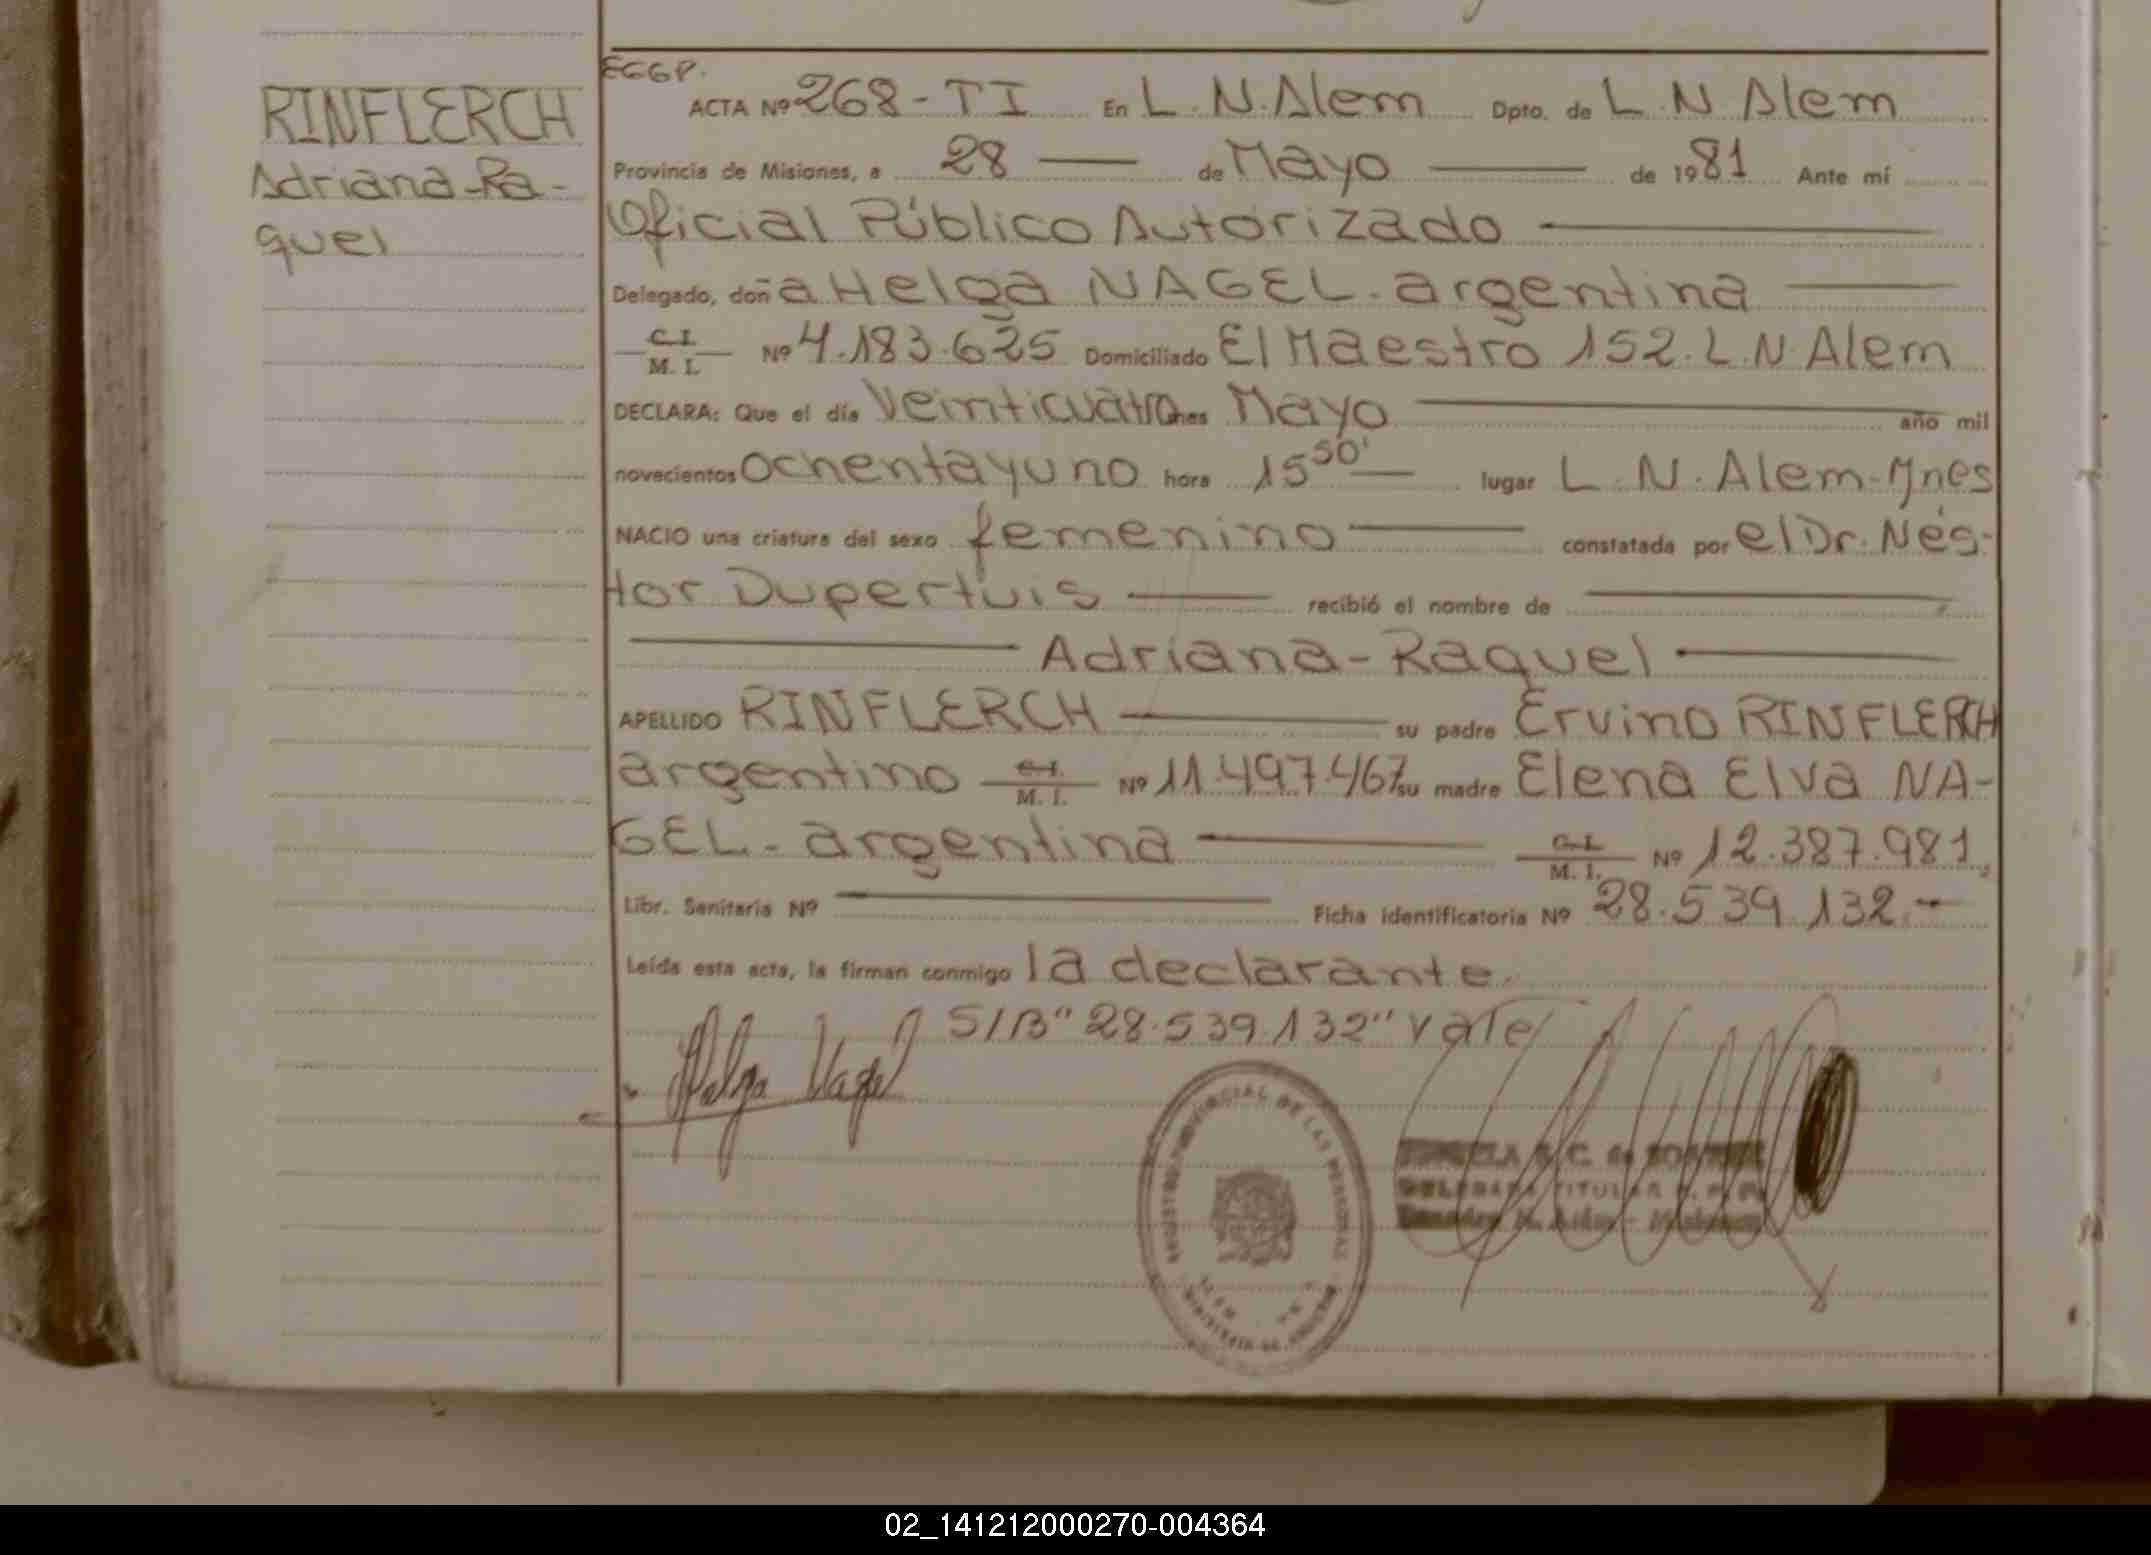 RINFLERCH
Adriana-Ra-
quel
EGGP.
ACTA Nº 268-TI En L.N.Alem Dpto. de L.N Alem
Provincia de Misiones, a 28 de Mayo de 1981 Ante mí
Oficial Público Autorizado
Delegado, doña Helga NAGEL-argentina
C.I.
M. I. Nº 4.183.625 Domiciliado El Maestro 152.L.N.Alem
DECLARA: Que el día Veinticuatro mes Mayo año mil
novecientos ochentayuno hora 15 50' lugar L.N.Alem-Mnes
NACIO una criatura del sexo femenino constatada por el Dr. Nés-
tor Dupertuis recibió el nombre de
Adriana-Raquel
APELLIDO RINFLERCH su padre Ervino RINFLERCH
argentino C.I. M. I. Nº 11.497.467 su madre Elena Elva NA-
GEL-argentina C.I. M. I. Nº 12.387.981
Libr. Sanitaria Nº Ficha identificatoria Nº 28.539.132.-
Leída esta acta, la firman conmigo la declarante.
S/B" 28.539.132" vale
Helga Nagel
PROVINCIAL DE LAS PERSONAS
DELEGADA TITULAR
02_141212000270-004364